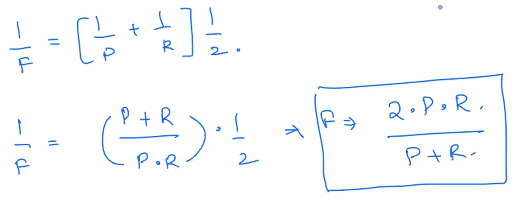 1/F = [1/P + 1/R] 1/2.
1/F = (P+R / P•R) • 1/2 → F → 2•P•R. / P+R.